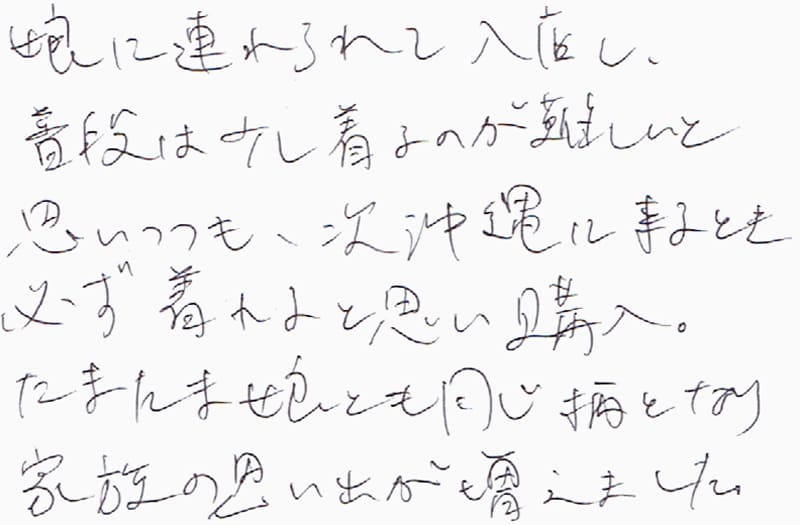 娘に連れられて入店し、
普段は少し着るのが難しいと
思いつつも、次沖縄に来るとき
必ず着れると思い購入。
たまたま娘とも同じ柄となり
家族の思い出が増えました。